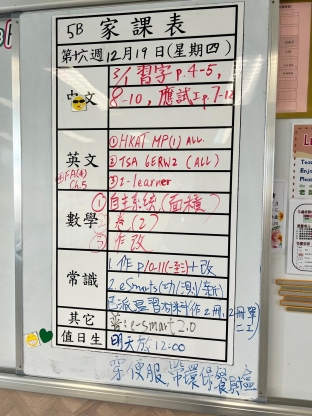 5B 家課表
第十六週 12月19日(星期四)
中文
3/1 習字 p.4-5,
8-10, 應試 I p.7-12
英文
① HKAT MP(1) ALL.
② TSA GERW2 (ALL)
③ I-learner
FA(4)
Ch.5
數學
① 自主系統(面積)
② 卷(2)
③ 作改
常識
1. 作 p10-11(一至三)+改
2. eSmarts(功/測/新)
派溫習材料(作2冊, 2冊單二工)
其它
普: e-smart 2.0
值日生
明天放 12:00
穿便服 帶環保餐具盒